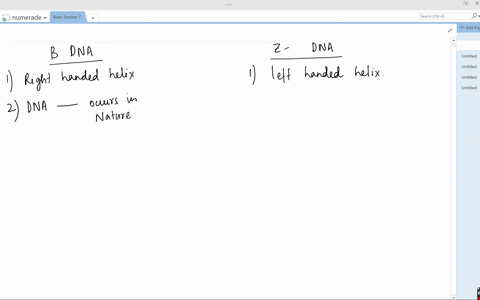 numerade
New Section 1
Search (Ctrl+E)
B DNA
1) Right handed helix
2) DNA — occurs in
Nature
Z- DNA
1) left handed helix.
Untitled
Untitled
Untitled
Untitled